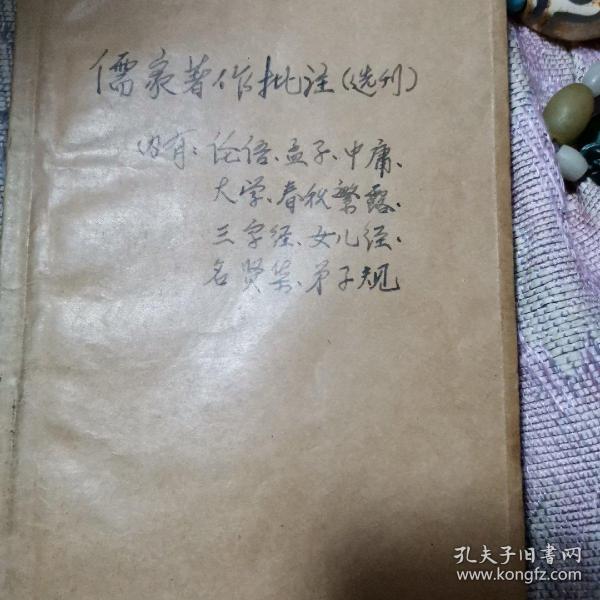 儒家著作批注(选刊)
内有：论语、孟子、中庸、
大学、春秋繁露、
三字经、女儿经、
名贤集、弟子规
孔夫子旧书网
www.kongfz.com